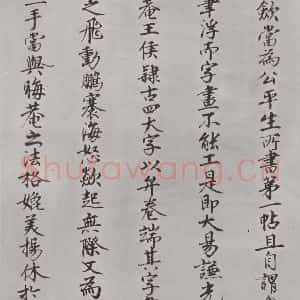 歛當為公平生所書第一帖且自謂
書浮而字畫不能工是即大易謙
菴王侯隸古四大字以弁卷端其字
之飛動鵬騫海怒歘起無際又為
手當與晦菴之法格媲美揚休於
Shufawang.Cn